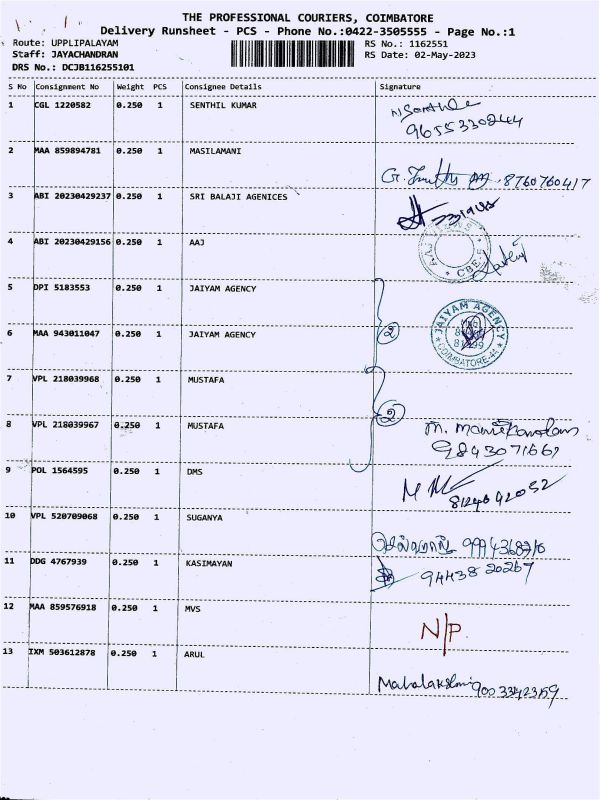 THE PROFESSIONAL COURIERS, COIMBATORE
Delivery Runsheet - PCS - Phone No.:0422-3505555 - Page No.:1
Route: UPPLIPALAYAM RS No.: 1162551
Staff: JAYACHANDRAN RS Date: 02-May-2023
DRS No.: DCJB116255101
S No Consignment No Weight PCS Consignee Details Signature
1 CGL 1220582 0.250 1 SENTHIL KUMAR
2 MAA 859894781 0.250 1 MASILAMANI
8760760417
3 ABI 20230429237 0.250 1 SRI BALAJI AGENICES
4 ABI 20230429156 0.250 1 AAJ
CBE
5 DPI 5183553 0.250 1 JAIYAM AGENCY
JAIYAM AGENCY
COIMBATORE-44
2
6 MAA 943011047 0.250 1 JAIYAM AGENCY
7 VPL 218039968 0.250 1 MUSTAFA
2
8 VPL 218039967 0.250 1 MUSTAFA
m. manikandan
9843071667
9 POL 1564595 0.250 1 DMS
10 VPL 520709068 0.250 1 SUGANYA
11 DDG 4767939 0.250 1 KASIMAYAN
94438 20267
12 MAA 859576918 0.250 1 MVS
N/P
13 IXM 503612878 0.250 1 ARUL
Mahalakshmi